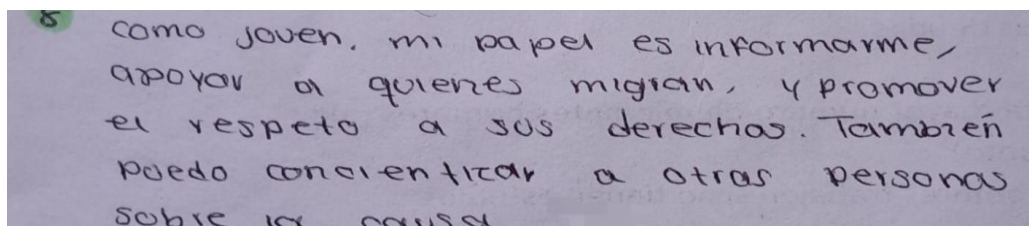 8 como joven, mi papel es informarme,
apoyar a quienes migran, y promover
el respeto a sus derechos. Tambien
puedo concientizar a otras personas
sobre la causa